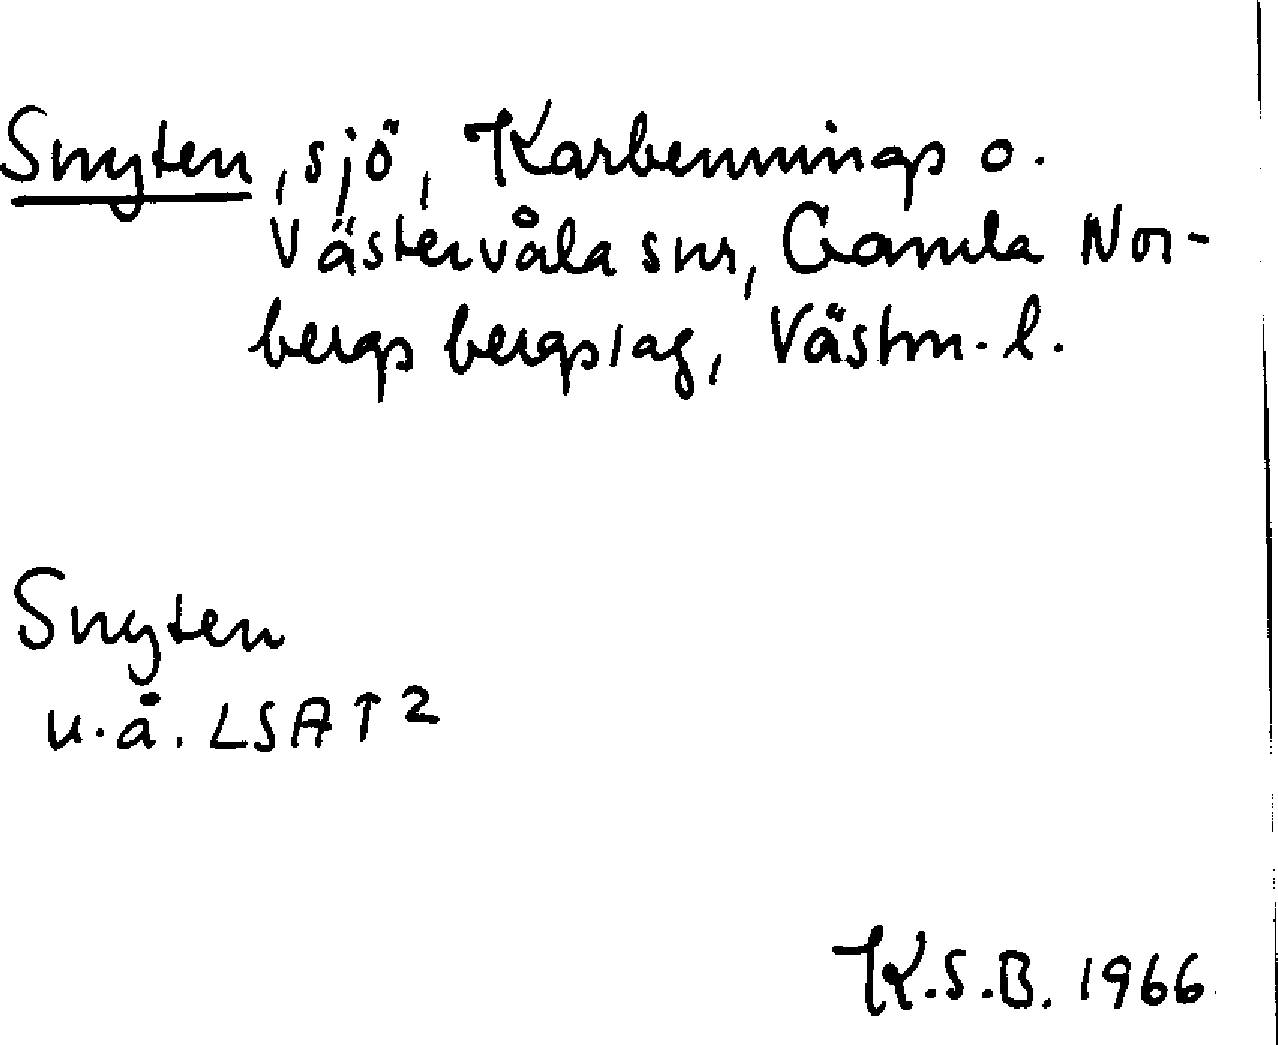 Snyten, sjö, Karbennings o.
Västervåla snr, Gamla Nor-
bergs bergslag, Västm. l.
Snyten
u.å. LSA T 2
K.S.B. 1966